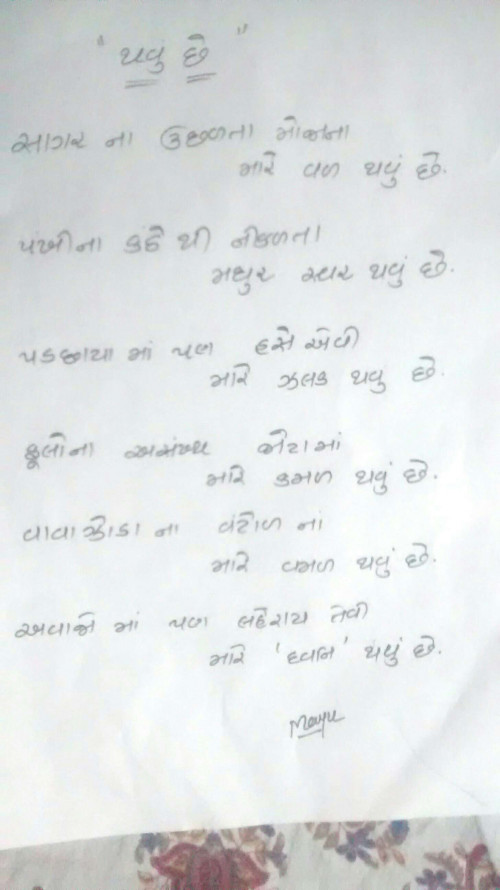 " થવું છે "
સાગર ના ઉછળતા મોજાના
મારે વળ થવું છે.
પંખીના કંઠે થી નીકળતા
મધુર સ્વર થવું છે.
પડછાયા માં પણ હસે એવી
મારે ઝલક થવુ છે.
ફૂલોના અસંખ્ય માં
મારે કમળ થવું છે.
વાવાઝોડા ના વંટોળ નાં
મારે વમળ થવું છે.
અવાજો માં પણ લહેરાય તેવી
મારે ' ' થવું છે.
Mayu